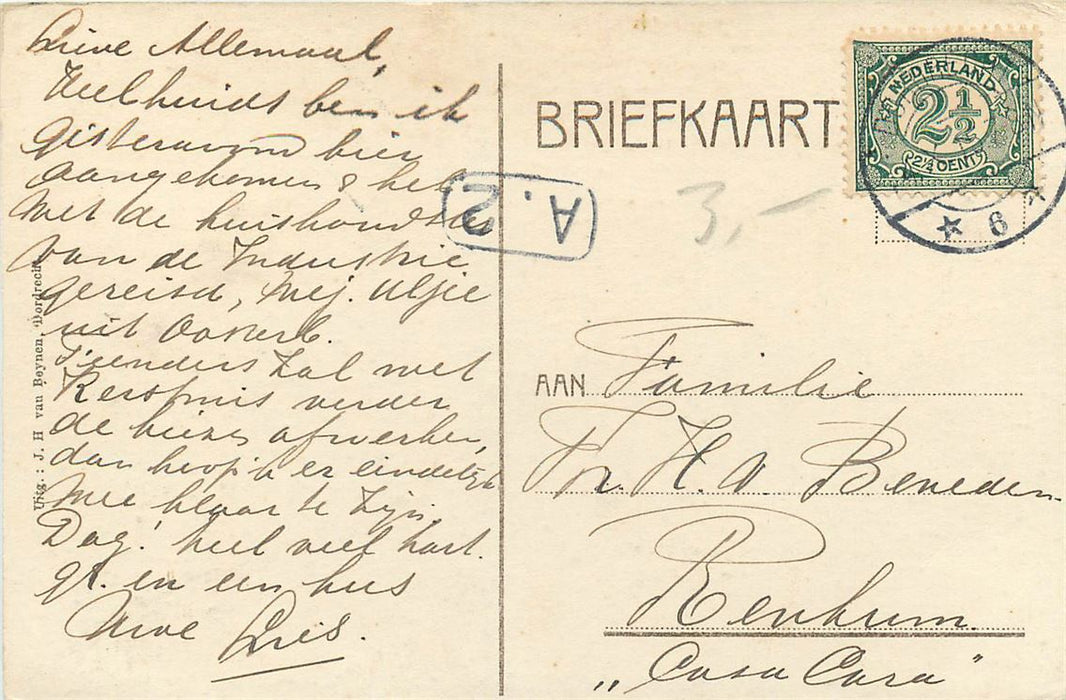 Lieve Allemaal,
Veel huids ben ik
gisteravond hier
aangekomen & heb
met de huishoudster
van de Industrie
gereisd, Mej. Uljee
uit Oosterb.
zal met
Kerstmis verder
de afwerken,
dan hoop 'k er eindelijk
mee klaar te zijn.
Dag! heel veel hart.
gr. en een kus
Uwe Lies.
Uitg.: J. H van Beynen, Dordrecht
BRIEFKAART
NEDERLAND
2½
2½ CENT
6
A. 2
3,-
AAN Familie
Fr. H. v. Beneden
Renkum.
„Casa Cara"